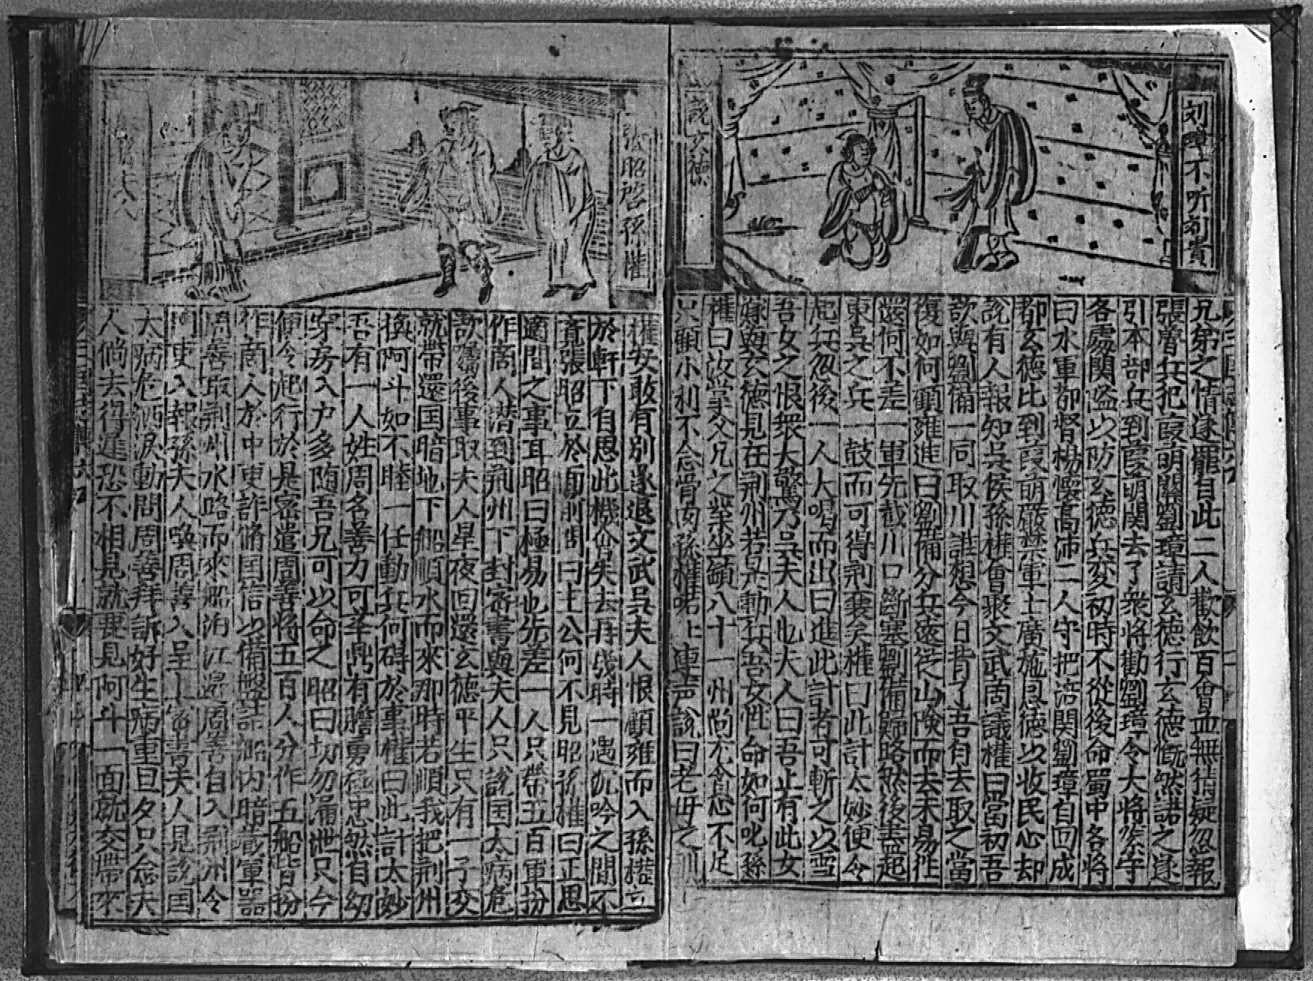 刘璋不听刘贵
説玄德
兄弟之情遂罷自此二人歡飲百會並無猜疑忽報
張魯兵犯葭明關劉璋請玄德行玄德慨然諾之遂
引本部兵到葭明関去了衆將勸劉璋令大將緊守
各處関隘以防玄德兵変初時不從後命蜀中各將
曰水軍都督楊懷髙沛二人守把涪関劉璋自囬成
都玄德比到葭萌嚴禁軍士廣施恩德以收民心却
説有人報知吳侯孫權會聚文武商議權曰當初吾
欲與劉備一同取川誰想今日昔了吾有去取之當
復如何顧雍進曰劉備分兵遠從山險而去未易徃
還何不差一軍先截川口斷塞劉備歸路然後盡起
東吳之兵一鼓而可得荆襄矣權曰此計太妙便令
起兵忽後一人大喝而出曰進此計者可斬之以雪
吾女之恨衆大驚乃吳夫人也大人曰吾止有此女
嫁與玄德見在荆州若是動兵吾女性命如何叱孫
權曰汝掌父兄之業坐領八十一州尚尤貪心不足
只顧小利不念骨肉孫權喏上連声説曰老母之訓
張昭啓孫權
權安敢有別遂退文武吳夫人恨顧雍而入孫權立
於軒下自思此機會失去再幾時一遇沉吟之間不
竟張昭立於面前問曰主公何不見昭孫權曰正思
適間之事耳昭曰極易也先差一人只帶五百軍扮
作商人潜到荊州下封宻書與夫人只説国太病危
欲囑後事取夫人星夜囬還玄德平生只有一子交
就帶還国暗地下船順水而來那時若順我把荆州
換阿斗如不睦一任動兵何碍於事權曰此計太妙
吾有一人姓周名善力可舉鼎有膽勇極忠然自幼
穿房入户多随吾兄可以命之昭曰切勿漏泄只今
便令起行於是宻遣周善將五百人分作五船皆扮
作商人於中更詐脩国信以備盤詰船内暗藏軍器
周善取荆州水路而來船泊江邉周善自入荆州令
門吏入報孫夫人喚周善入呈上宻書夫人見説国
太病危洒淚動問周善拜訴好生病重旦夕只念夫
人倘去得遲恐不相見就要見阿斗一面就交帶來